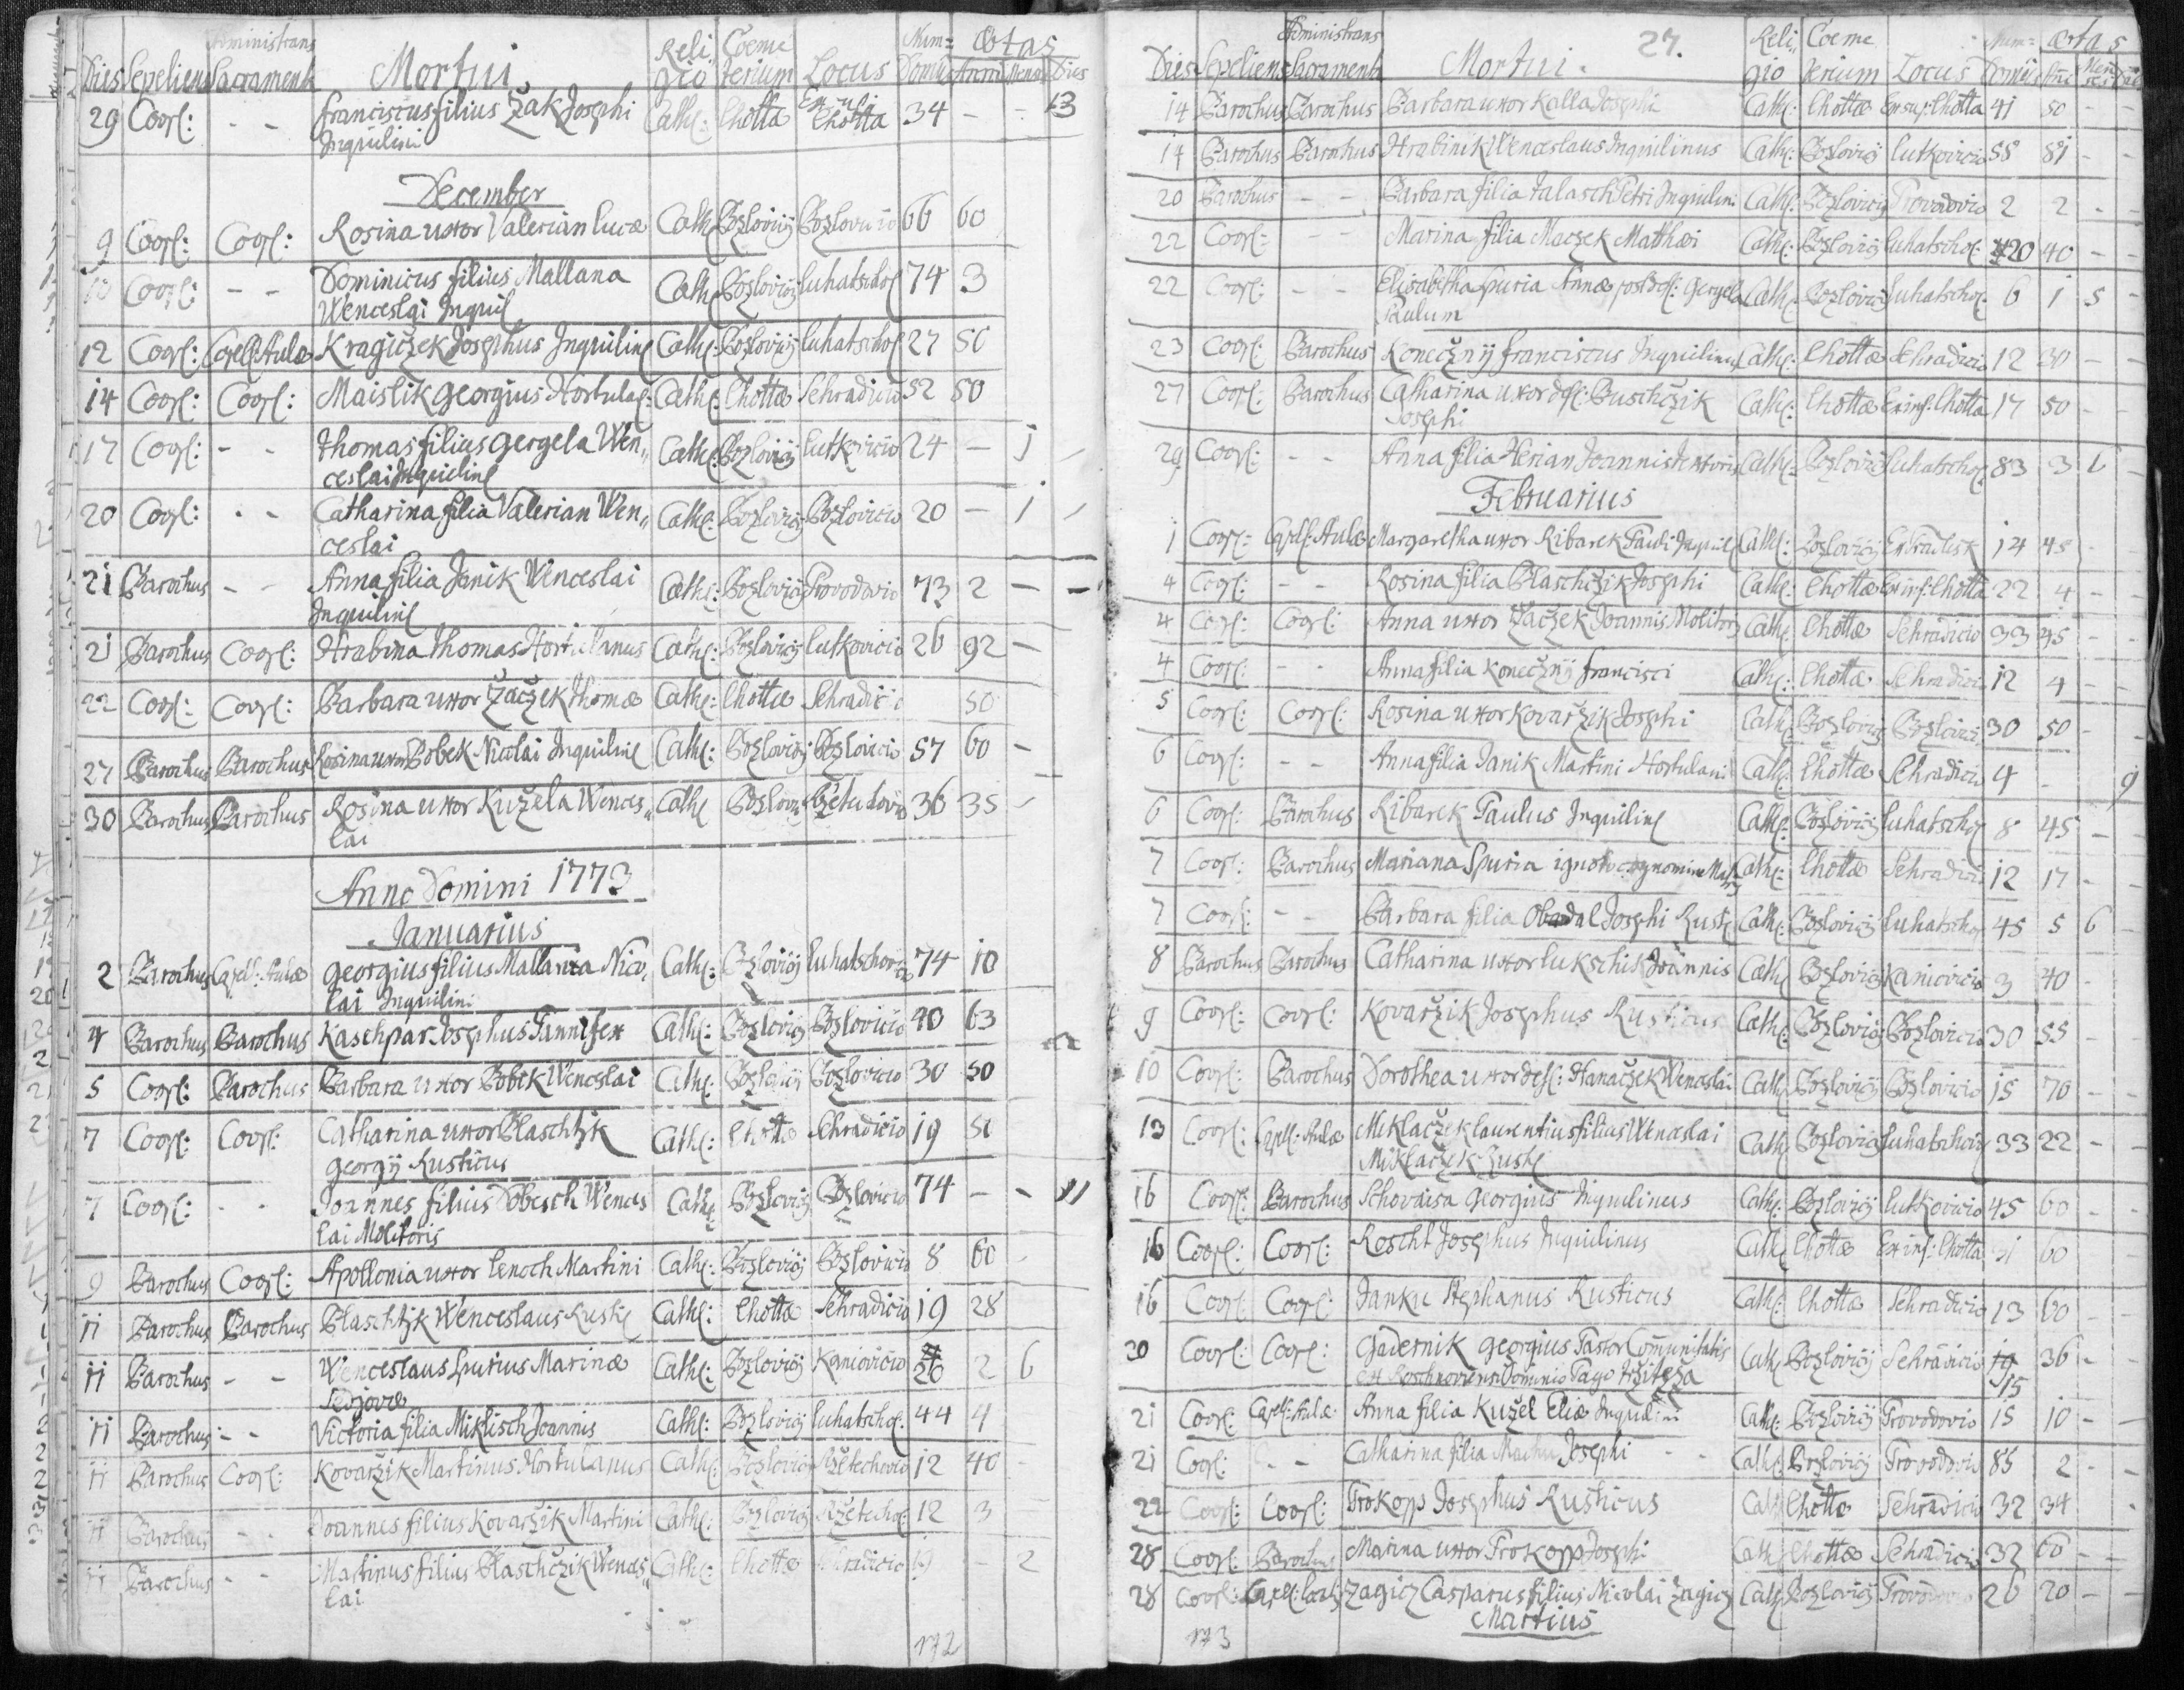 Dies Sepeliens Administrans Sacramenta Mortui. Religio Coemeterium Locus Num= Domus Ætas Anni Menses Dies
29 Coop: - - Franciscus filius Žak Josephi Cath: Lhottæ Lhotta 34 - - 13
Inquilini
December
9 Coop: Coop: Rosina uxor Valerian Lucæ Cath: Pozlovicij Pozlovicio 66 60
10 Coop: - - Dominicus filius Mallana Cath: Pozlovicij Luhatschof 74 3
Wenceslai Inquil
12 Coop: Capell: Aulæ Kragiczek Josephus Inquilin Cath: Pozlovicij Luhatschof 27 50
14 Coop: Coop: Maislik Georgius Hortulaf: Cath: Lhottæ Sehradicio 52 50
17 Coop: - - Thomas filius Gergela Wen„ Cath: Pozlovicij Lutkovicio 24 - 1
ceslai Inquilini
20 Coop: - - Catharina filia Valerian Wen„ Cath: Pozlovicij Pozlovicio 20 - 1
ceslai
21 Parochus - - Anna filia Janik Wenceslai Cath: Pozlovicij Provodovio 73 2 - -
Inquilini
21 Parochus Coop: Hrabina Thomas Hortulanus Cath: Pozlovicij Lutkovicio 26 92 -
22 Coop: Coop: Barbara uxor Začzek Thomæ Cath: Lhottæ Sehradicio 50
27 Parochus Parochus Rosina uxor Bobek Nicolai Inquilini Cath: Pozlovicij Pozlovicio 57 60 -
30 Parochus Parochus Rosina uxor Kužela Wences„ Cath 36 35
lai
Anno Domini 1773
Januarius
2 Parochus Capell: Aulæ Georgius filius Mallana Nico„ Cath: Pozlovicij 74 10
lai Inquilini
4 Parochus Parochus Kaschpar Josephus Pannifex Cath: Pozlovicij Pozlovicio 40 63
5 Coop: Parochus Barbara uxor Bobek Wenceslai Cath: Pozlovicij Pozlovicio 30 50
7 Coop: Coop: Catharina uxor Blaschtzk Cath: Lhottæ Sehradicio 19 50
Georgij Rusticus
7 Coop: - - Joannes filius Dobesch Wences Cath Pozlovicij Pozlovicio 74 - - 11
lai Molitoris
9 Parochus Coop: Apollonia uxor Lenoch Martini Cath: Pozlovicij Pozlovicio 8 60
11 Parochus Parochus Blaschtzk Wenceslaus Rusti Cath: Lhottæ Sehradicio 19 28
11 Parochus - - Wenceslaus spurius Marinæ Cath: Pozlovicij Kaniovicio 26 2 6
11 Parochus - - Victoria filia Miklisch Joannis Cath: Pozlovicij Luhatschof. 44 4
11 Parochus Coop: Kovaržik Martinus Hortulanus Cath: Pozlovicij Ržetechovio 12 40
11 Parochus - - Joannes filius Kovaržik Martini Cath: Pozlovicij Ržetechof: 12 3
11 Parochus - - Martinus filius Blaschčzik Wences„ Cath: Lhottæ Sehradicio 19 - 2
lai
172
Dies Sepeliens Administrans Sacramenta Mortui. 27. Religio Coemeterium Locus Num= Domus Ætas
14 Parochus Parochus Barbara uxor Kalla Josephi Cath: Lhottæ Ex sup: Lhotta 41 50
14 Parochus Parochus Hrabinik Wenceslaus Inquilinus Cath: Pozlovicij Lutkovicio 58 81 - -
20 Parochus - - Barbara filia Jalasch Petri Inquilini Cath: Pozlovicij Provodovio 2 2 - -
22 Coop: - - Marina filia Maczek Matthæi Cath: Pozlovicij Luhatschof: 120 40 - -
22 Coop: - - Elisabetha spuria Annæ post Gergela Cath: Pozlovicij Luhatschof. 6 1 5 -
Paulum
23 Coop: Parochus Konečzny Franciscus Inquilinus Cath: Lhottæ Sehradicio 12 30 - -
27 Coop: Parochus Catharina uxor def: Buschčzik Cath: Lhottæ Ex inf: Lhotta 17 50 -
Josephi
29 Coop: - - Anna filia Herian Joannis Cath: Pozlovicij Luhatschof 83 3 6 -
Februarius
1 Coop: Capell: Aulæ Margaretha uxor Ribarek Pauli Inquil Cath: Pozlovicij 14 45 -
4 Coop: - - Rosina filia Blaschčzik Josephi Cath: Lhottæ Ex inf: Lhotta 22 4 - -
4 Coop: Coop: Anna uxor Začzek Joannis Molitoris Cath: Lhottæ Sehradicio 33 45 - -
4 Coop: - - Anna filia Konečzny Francisci Cath: Lhottæ Sehradicio 12 4 - -
5 Coop: Coop: Rosina uxor Kovaržik Josephi Cath Pozlovicij Pozlovicio 30 50 - -
6 Coop: - - Anna filia Janik Martini Hortulani Cath: Lhottæ Sehradicio 4 - 9
6 Coop: Parochus Ribarek Paulus Inquilin Cath: Pozlovicij Luhatschof 8 45 - -
7 Coop: Parochus Mariana spuria ignoto cognomine Cath: Lhottæ Sehradicio 12 17 - -
7 Coop: - - Barbara filia Obadal Josephi Rusti Cath: Pozlovicij Luhatschof 45 5 6 -
8 Parochus Parochus Catharina uxor Lukschik Joannis Cath Pozlovicij Kaniovicio 3 40 -
9 Coop: Coop: Kovaržik Josephus Rusticus Cath: Pozlovicij Pozlovicio 30 55 -
10 Coop: Parochus Dorothea uxor def: Hanačzek Wenceslai Cath Pozlovicij Pozlovicio 15 70 - -
13 Coop: Capell: Aulæ Miklačzek Laurentius filius Wenceslai Cath Pozlovicij 33 22 - -
Miklačzek Rusti
16 Coop: Parochus Schovaisa Georgius Inquilinus Cath: Pozlovicij Lutkovicio 45 60 - -
16 Coop: Coop: Roscht Josephus Inquilinus Cath Lhottæ Ex inf: Lhotta 31 60
16 Coop: Coop: Janku Stephanus Rusticus Cath: Lhottæ Sehradicio 13 60 - -
30 Coop: Coop: Gadernik Georgius Pastor Communitatis Cath Pozlovicij Sehradicio 19 36 - -
15
21 Coop: Capell: Aulæ Anna filia Kužel Eliæ Inquilini Cath: Pozlovicij Provodovio 15 10 - -
21 Coop: - - Catharina filia Machu Josephi Cath Pozlovicij Provodovio 85 2 - -
22 Coop: Coop: Prokopp Josephus Rusticus Cath Lhottæ Sehradicio 32 34
28 Coop: Parochus Marina uxor Prokopp Josephi Cath Lhottæ Sehradicio 32 60 - -
28 Coop: Zagicz Casparus filius Nicolai Zagicz Cath Pozlovicij 26 20 - -
Martius
173